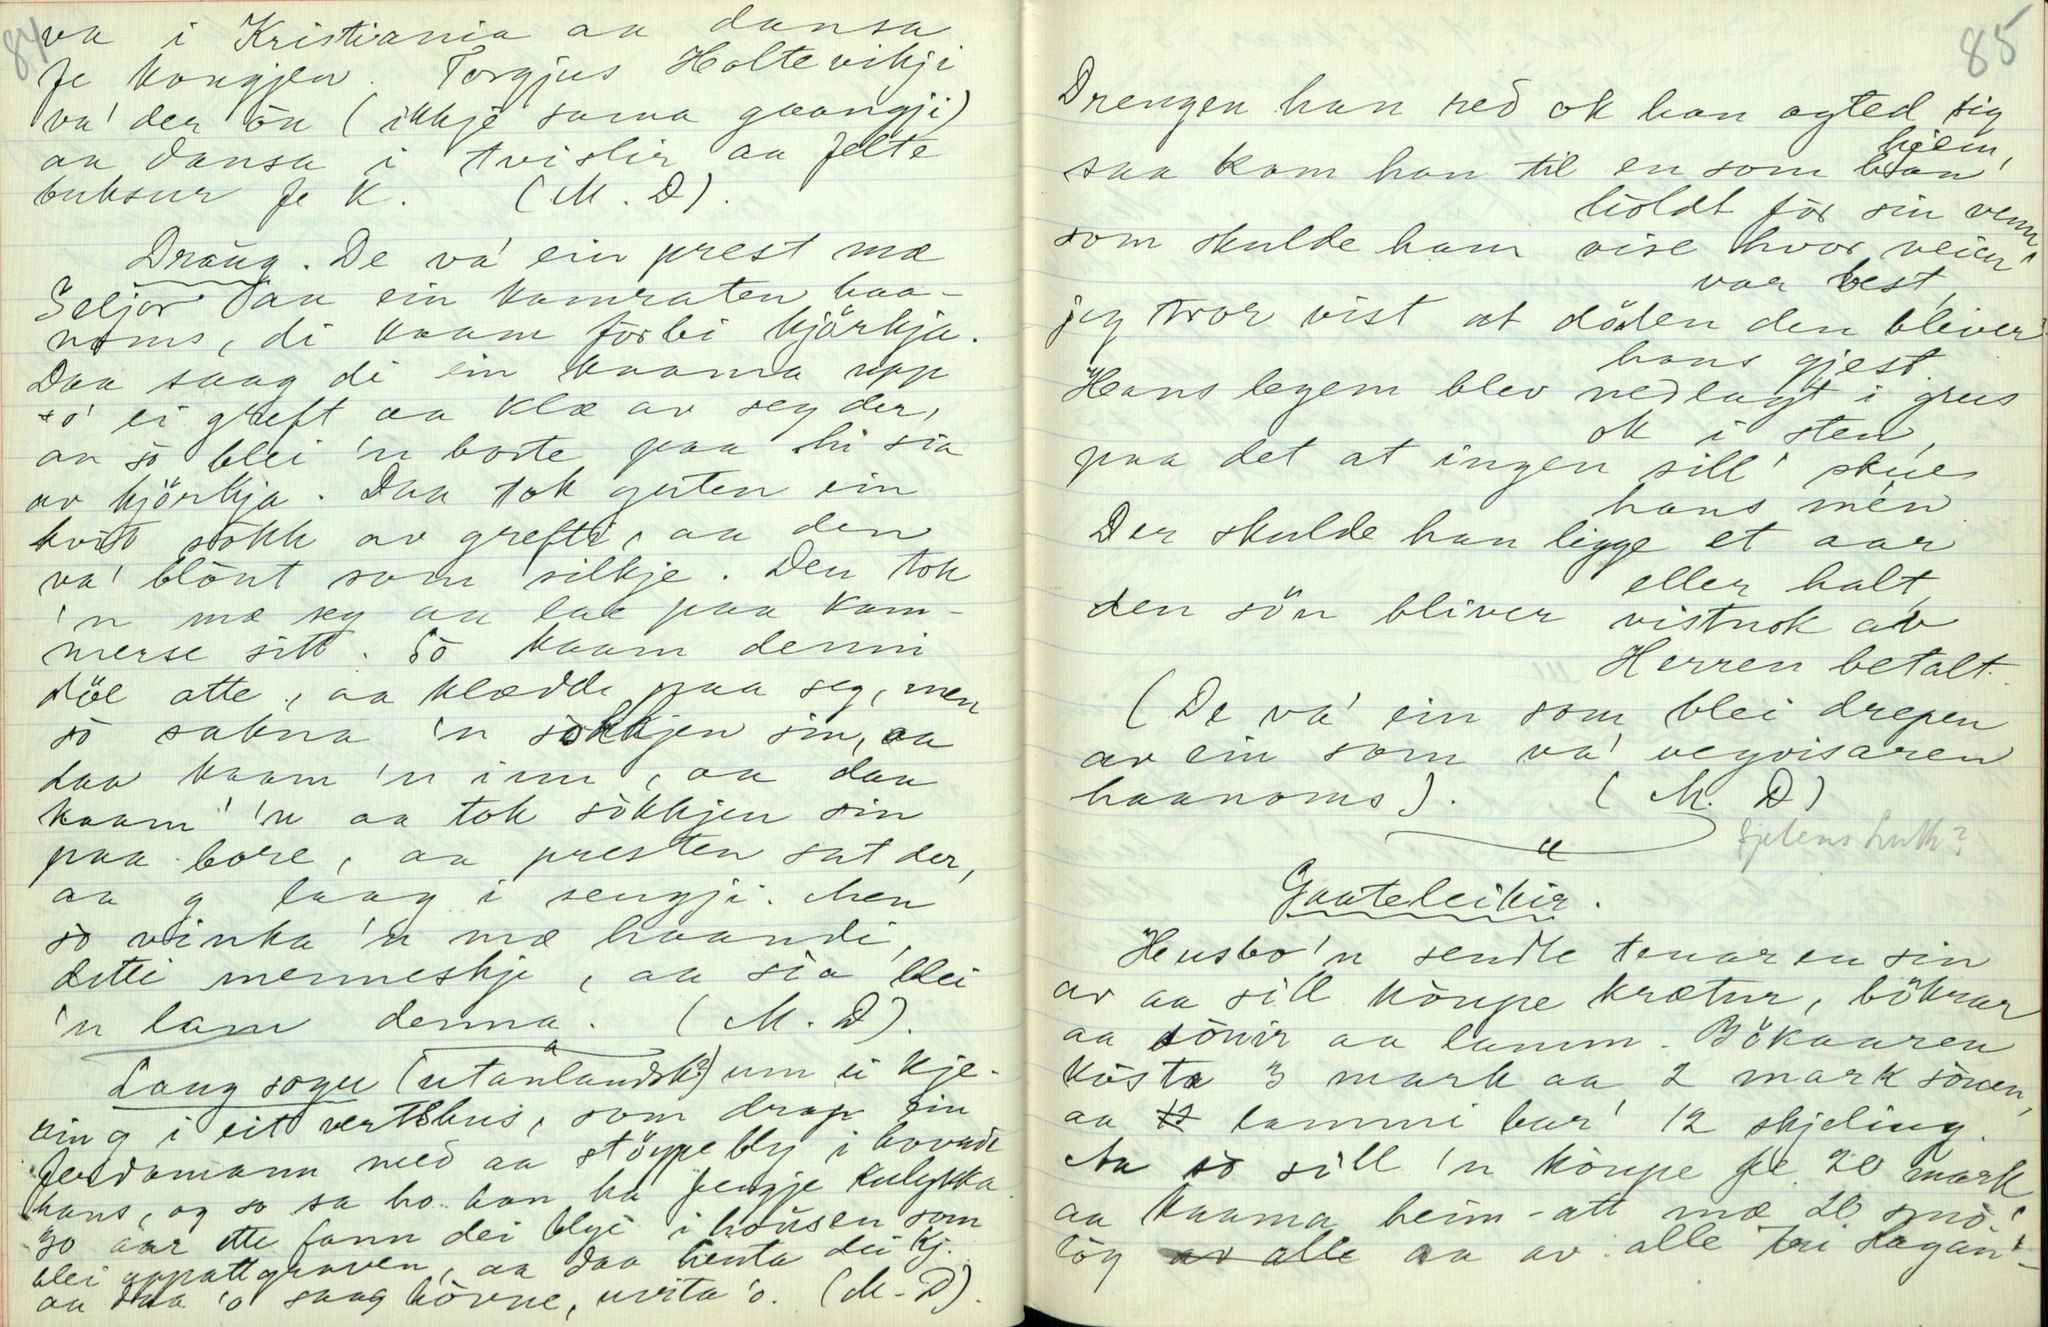 84
va i Kristiania aa dansa
fe kongjen. Torgjus Holtevikji
va' der òu (ikkje sama gaangji)
aa dansa i tvislir aa felte
buksur fe K. (M. D).
Draug. De va' ein prest mæ
Seljor aa ein kamraten haa-
noms, di kaam forbi kjörkja.
Daa saag di ein kaama upp
o' ei greft aa klæ av seg der,
aa so blei 'n borte paa hi sia
av kjörkja. Daa tok guten ein
kvit sokk av grefti, aa den
va' blöut som silkje. Den tok
'n mæ seg aa lae paa kam-
merse sitt. So kaam denni
atte, aa klædde paa seg, men
so sakna 'n sokkjen sin, aa
daa kaam 'n inn, aa daa
kaam 'n aa tok sokkjen sin
paa bore, aa presten sat der,
aa g laag i sengji. Men
so vinka 'n mæ haandi,
detti menneskje, aa sia blei
'n lam denna. (M. D).
Laang sogu (utanlandsk?) um ei kje-
ring i eit vertshus, som drap ein
ferdamann med aa stöype bly i hovude
hans, og so sa ho han ha fengje ulykka
30 aar ette fann dei blye i hausen som
blei uppattgraven, aa daa henta dei Kj.
aa daa 'o saag hovue, uvita 'o. (M. D).
85
Drengen han red ok han agted sig
hjem,
saa kom han til en som han
holdt for sin venn
som skulde ham vise hvor veien
var best,
jeg tror vist at döden den bliver
hans gjest
Hans legem blev nedlagt i grus
ok i sten,
paa det at ingen sill' skue
hans mén
Der skulde han ligge et aar
eller halt,
den sön bliver vistnok av
Herren betalt.
(De va' ein som blei drepen
av ein som va' vegvisaren
haanoms). (M. D)
Gaateleikir.
Husbo'n sendte tenaren sin
av aa sill köupe krætur, bökrar
aa souir aa lamm. Bökaaren
kosta 3 mark aa 2 mark souen,
aa lammi bar' 12 skjeling.
Aa so sill 'n köupe fe 20 mark
aa kaama heim-att mæ 20 smö-
tög av alle aa av alle tri slagan'-